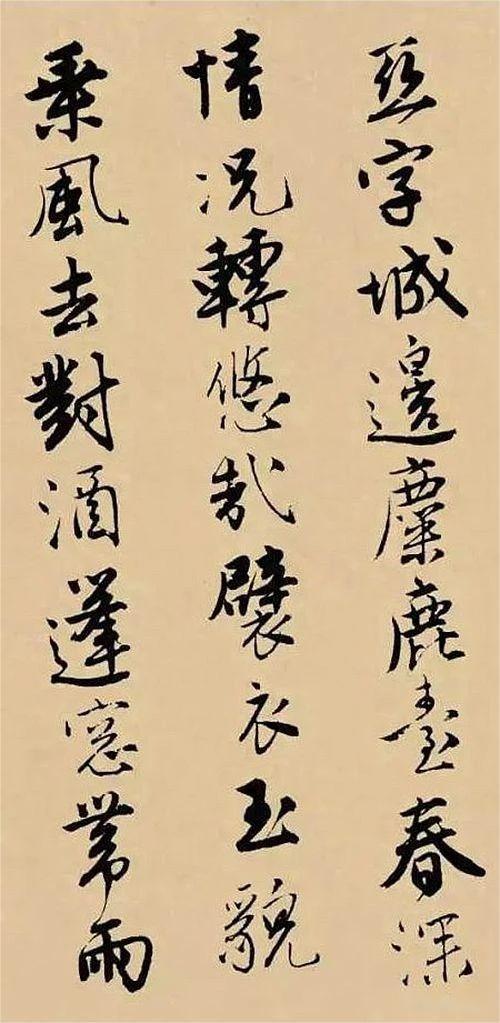 亞字城邊麋鹿臺春深
情況轉悠哉襞衣玉貌
乘風去對酒蓬窓帶雨